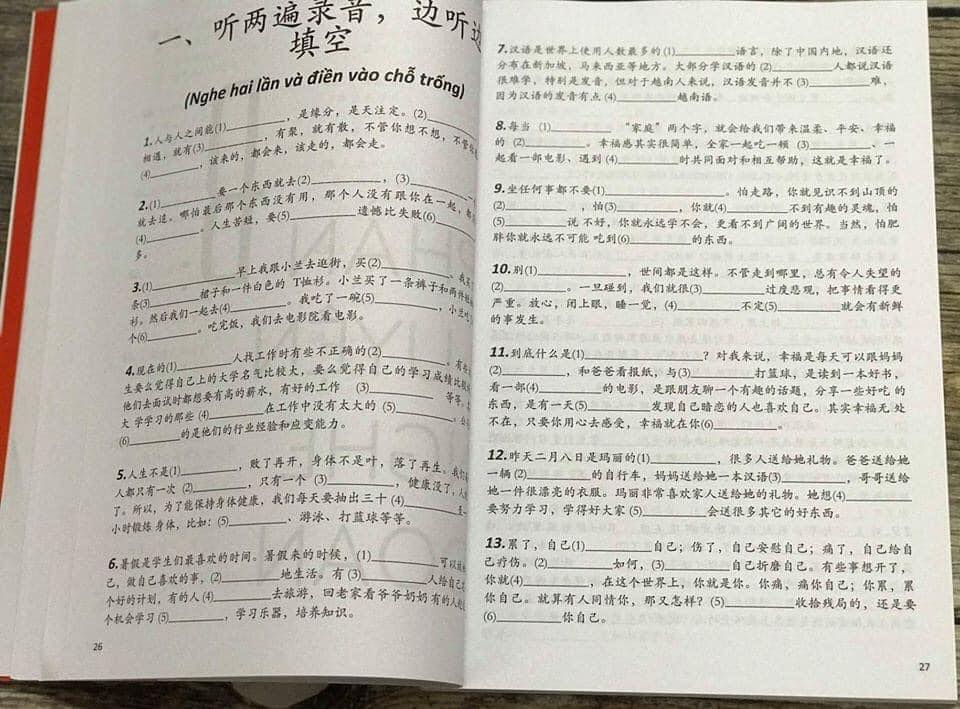 一、听两遍录音，边听边
填空
(Nghe hai lần và điền vào chỗ trống)
1.人与人之间能(1)_________，是缘分，是天注定。(2)_________
相遇，就有(3)_________，有聚，就有散，不管你想不想，不管你
(4)_________，该来的，都会来，该走的，都会走。
2.(1)_________要一个东西就去(2)_________，(3)_________
就去追。哪怕最后那个东西没有用，那个人没有跟你在一起，都
(4)_________。人生苦短，要(5)_________遗憾比失败(6)_________
多。
3.(1)_________早上我跟小兰去逛街，买(2)_________。我买
条(3)_________裙子和一件白色的 T恤衫。小兰买了一条裤子和两件
衫。然后我们一起去(4)_________。我吃了一碗(5)_________，小兰吃
个(6)_________。吃完饭，我们去电影院看电影。
4.现在的(1)_________人找工作时有些不正确的(2)_________。有些
生要么觉得自己上的大学名气比较大，要么觉得自己的学习成绩比
他们去面试时都想要有高的薪水，有好的工作 (3)_________ 等等。
大 学学习的那些 (4)_________在工作中没有太大的 (5)_________。
(6)_________的是他们的行业经验和应变能力。
5.人生不是(1)_________，败了再开，身体不是叶，落了再生。我们
人都只有一次 (2)_________，只有一个 (3)_________，健康没了，
了。所以，为了能保持身体健康，我们每天要抽出三十 (4)_________
小时锻炼 身体，比如：(5)_________、游泳、打篮球等等。
6.暑假是学生们最喜欢的时间。暑假来的时候，(1)_________可以
己，做自己喜欢的事，(2)_________地生活。有 (3)_________人给自己
个好的计划，有的人 (4)_________去旅游，回老家看爷爷奶奶 有的人
个机会学习 (5)_________，学习乐器，培养知识。
26
7.汉语是世界上使用人数最多的 (1)_________语言，除了中国内地，汉语还
分布在新加坡，马来西亚等地方。大部分学汉语的 (2)_________人都说汉语
很难学，特别是发音，但对于越南人来说，汉语发音并不 (3)_________难，
因为汉语的发音有点 (4)_________越南语。
8.每当 (1)_________ “家庭”两个字，就会给我们带来温柔、平安、幸福
的 (2)_________。幸福感其实很简单，全家一起吃一顿 (3)_________、一
起看一部电影、遇到 (4)_________时共同面对和相互帮助，这就是幸福了。
9.坐任何事都不要(1)_________。怕走路，你就见识不到山顶的
(2)_________，怕(3)_________，你就(4)_________不到有趣的灵魂，怕
(5)_________说 不好，你就永远学不会，更看不到广阔的世界。当然，怕肥
胖你就永远不可能 吃到(6)_________的东西。
10.别(1)_________，世间都是这样。不管走到哪里，总有令人失望的
(2)_________。一旦碰到，我们就很(3)_________过度悲观，把事情看得更
严重。放心，闭上眼，睡一觉，(4)_________不定(5)_________就会有新鲜
的事发生。
11.到底什么是(1)_________？对我来说，幸福是每天可以跟妈妈
(2)_________，和爸爸看报纸，与(3)_________打篮球，是读到一本好书，
看一部(4)_________的电影，是跟朋友聊一个有趣的话题，分享一些好吃 的
东西，是有一天(5)_________发现自己暗恋的人也喜欢自己。其实幸福无 处
不在，只要你用心去感受，幸福就在你(6)_________。
12.昨天二月八日是玛丽的(1)_________，很多人送给她礼物。爸爸送给她
一辆 (2)_________的自行车，妈妈送给她一本汉语(3)_________，哥哥送给
她一件很漂亮的衣服。玛丽非常喜欢家人送给她的礼物。她想(4)_________
要努力学习，学得好大家 (5)_________会送很多其它的好东西。
13.累了，自己(1)_________自己；伤了，自己安慰自己；痛了，自己给自
己疗伤。(2)_________如何，(3)_________自己折磨自己。有些事想开了，
你就(4)_________，在这个世界上，你就是你。你痛，痛你自己；你累，累
你自己。就算有人同情你，那又怎样？(5)_________收拾残局的，还是要
(6)_________你自己。
27